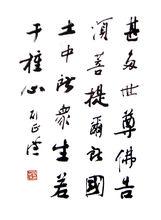 甚多世尊佛告
須菩提爾所國
土中所眾生若
干種心